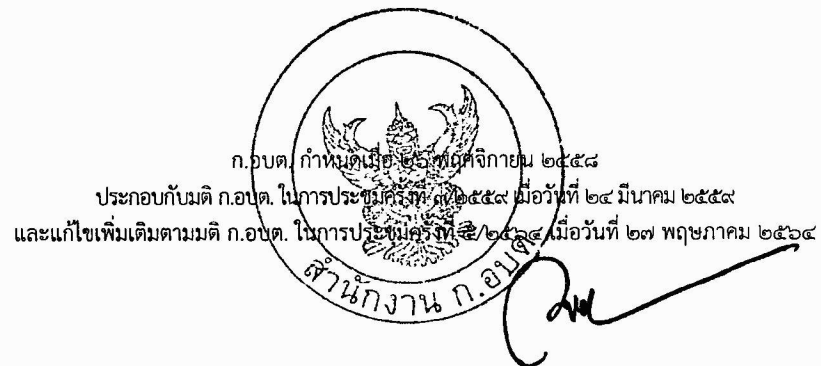 ก.อบต. กำหนดเมื่อ ๒๖ พฤศจิกายน ๒๕๕๘
ประกอบกับมติ ก.อบต. ในการประชุมครั้งที่ ๓/๒๕๕๙ เมื่อวันที่ ๒๔ มีนาคม ๒๕๕๙
และแก้ไขเพิ่มเติมตามมติ ก.อบต. ในการประชุมครั้งที่ ๕/๒๕๖๔ เมื่อวันที่ ๒๗ พฤษภาคม ๒๕๖๔
สำนักงาน ก.อบต.